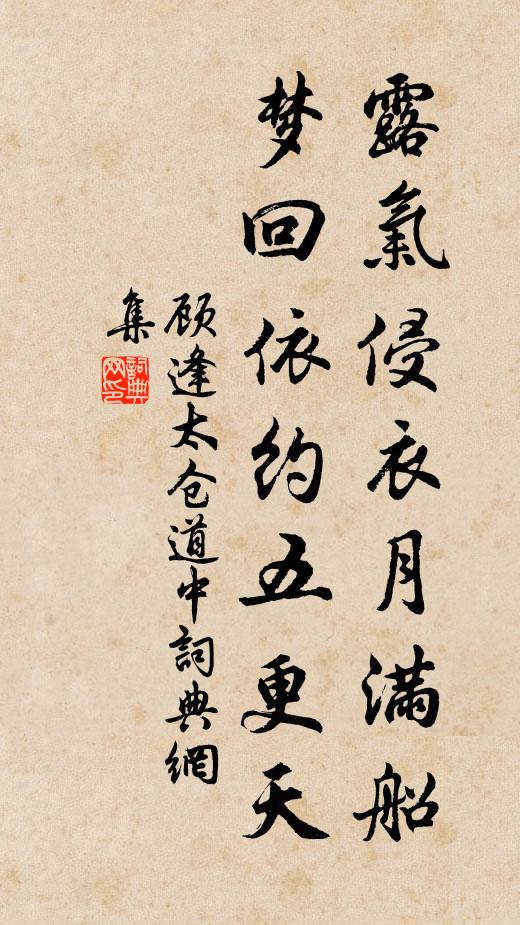 露氣侵衣月满船
梦回依约五更天
顾逢太仓道中詞典網
集
詞典网印